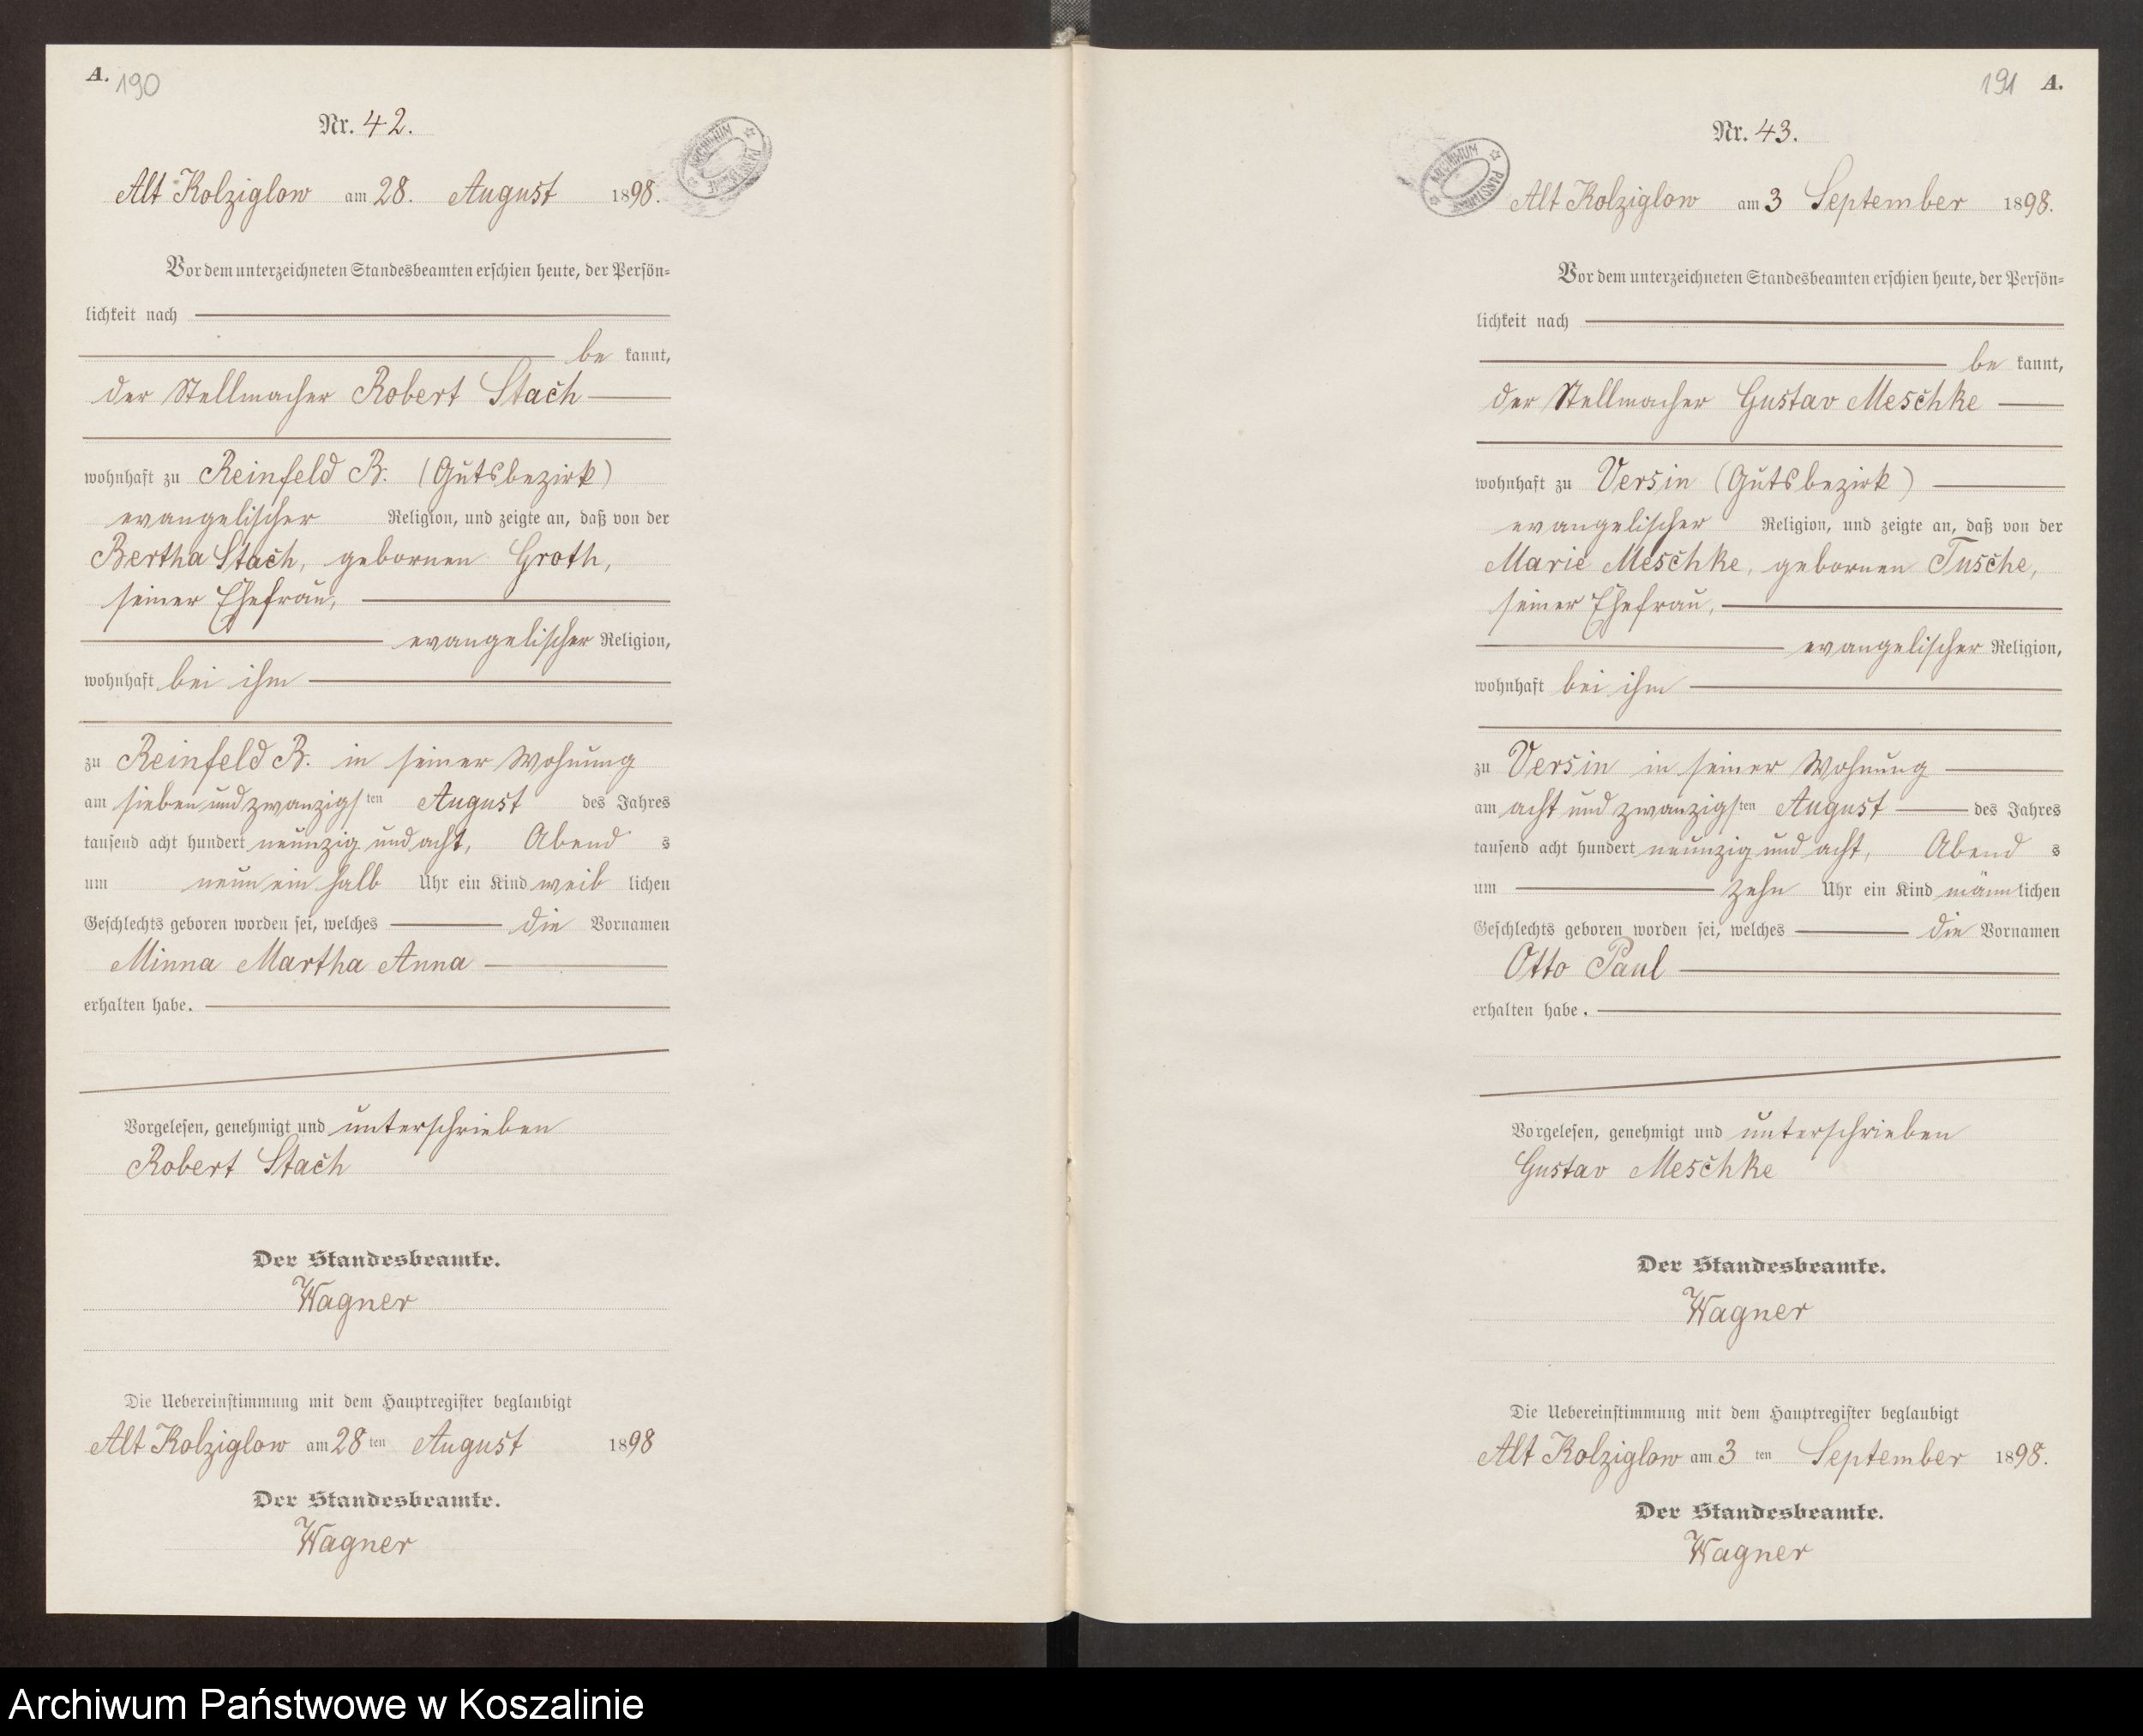 A. 190
Nr. 42.
ARCHIWUM
Alt Kolziglow am 28. August 1898.
Vor dem unterzeichneten Standesbeamten erschien heute, der Persön-
lichkeit nach
be kannt,
der Stellmacher Robert Stach
wohnhaft zu Reinfeld B. (Gutsbezirk)
evangelischer Religion, und zeigte an, daß von der
Bertha Stach, gebornen Groth,
seiner Ehefrau,
evangelischer Religion,
wohnhaft bei ihm
zu Reinfeld B. in seiner Wohnung
am sieben und zwanzigsten August des Jahres
tausend acht hundert neunzig und acht, Abend s
um neun ein halb Uhr ein Kind weib lichen
Geschlechts geboren worden sei, welches die Vornamen
Minna Martha Anna
erhalten habe.
Vorgelesen, genehmigt und unterschrieben
Robert Stach
Der Standesbeamte.
Wagner
Die Uebereinstimmung mit dem Hauptregister beglaubigt
Alt Kolziglow am 28 ten August 1898
Der Standesbeamte.
Wagner
191 A.
Nr. 43.
ARCHIWUM
Alt Kolziglow am 3 September 1898.
Vor dem unterzeichneten Standesbeamten erschien heute, der Persön-
lichkeit nach
be kannt,
der Stellmacher Gustav Meschke
wohnhaft zu Versin (Gutsbezirk)
evangelischer Religion, und zeigte an, daß von der
Marie Meschke, gebornen Tusche,
seiner Ehefrau,
evangelischer Religion,
wohnhaft bei ihm
zu Versin in seiner Wohnung
am acht und zwanzigsten August des Jahres
tausend acht hundert neunzig und acht, Abend s
um zehn Uhr ein Kind männlichen
Geschlechts geboren worden sei, welches die Vornamen
Otto Paul
erhalten habe.
Vorgelesen, genehmigt und unterschrieben
Gustav Meschke
Der Standesbeamte.
Wagner
Die Uebereinstimmung mit dem Hauptregister beglaubigt
Alt Kolziglow am 3 ten September 1898.
Der Standesbeamte.
Wagner
Archiwum Państwowe w Koszalinie